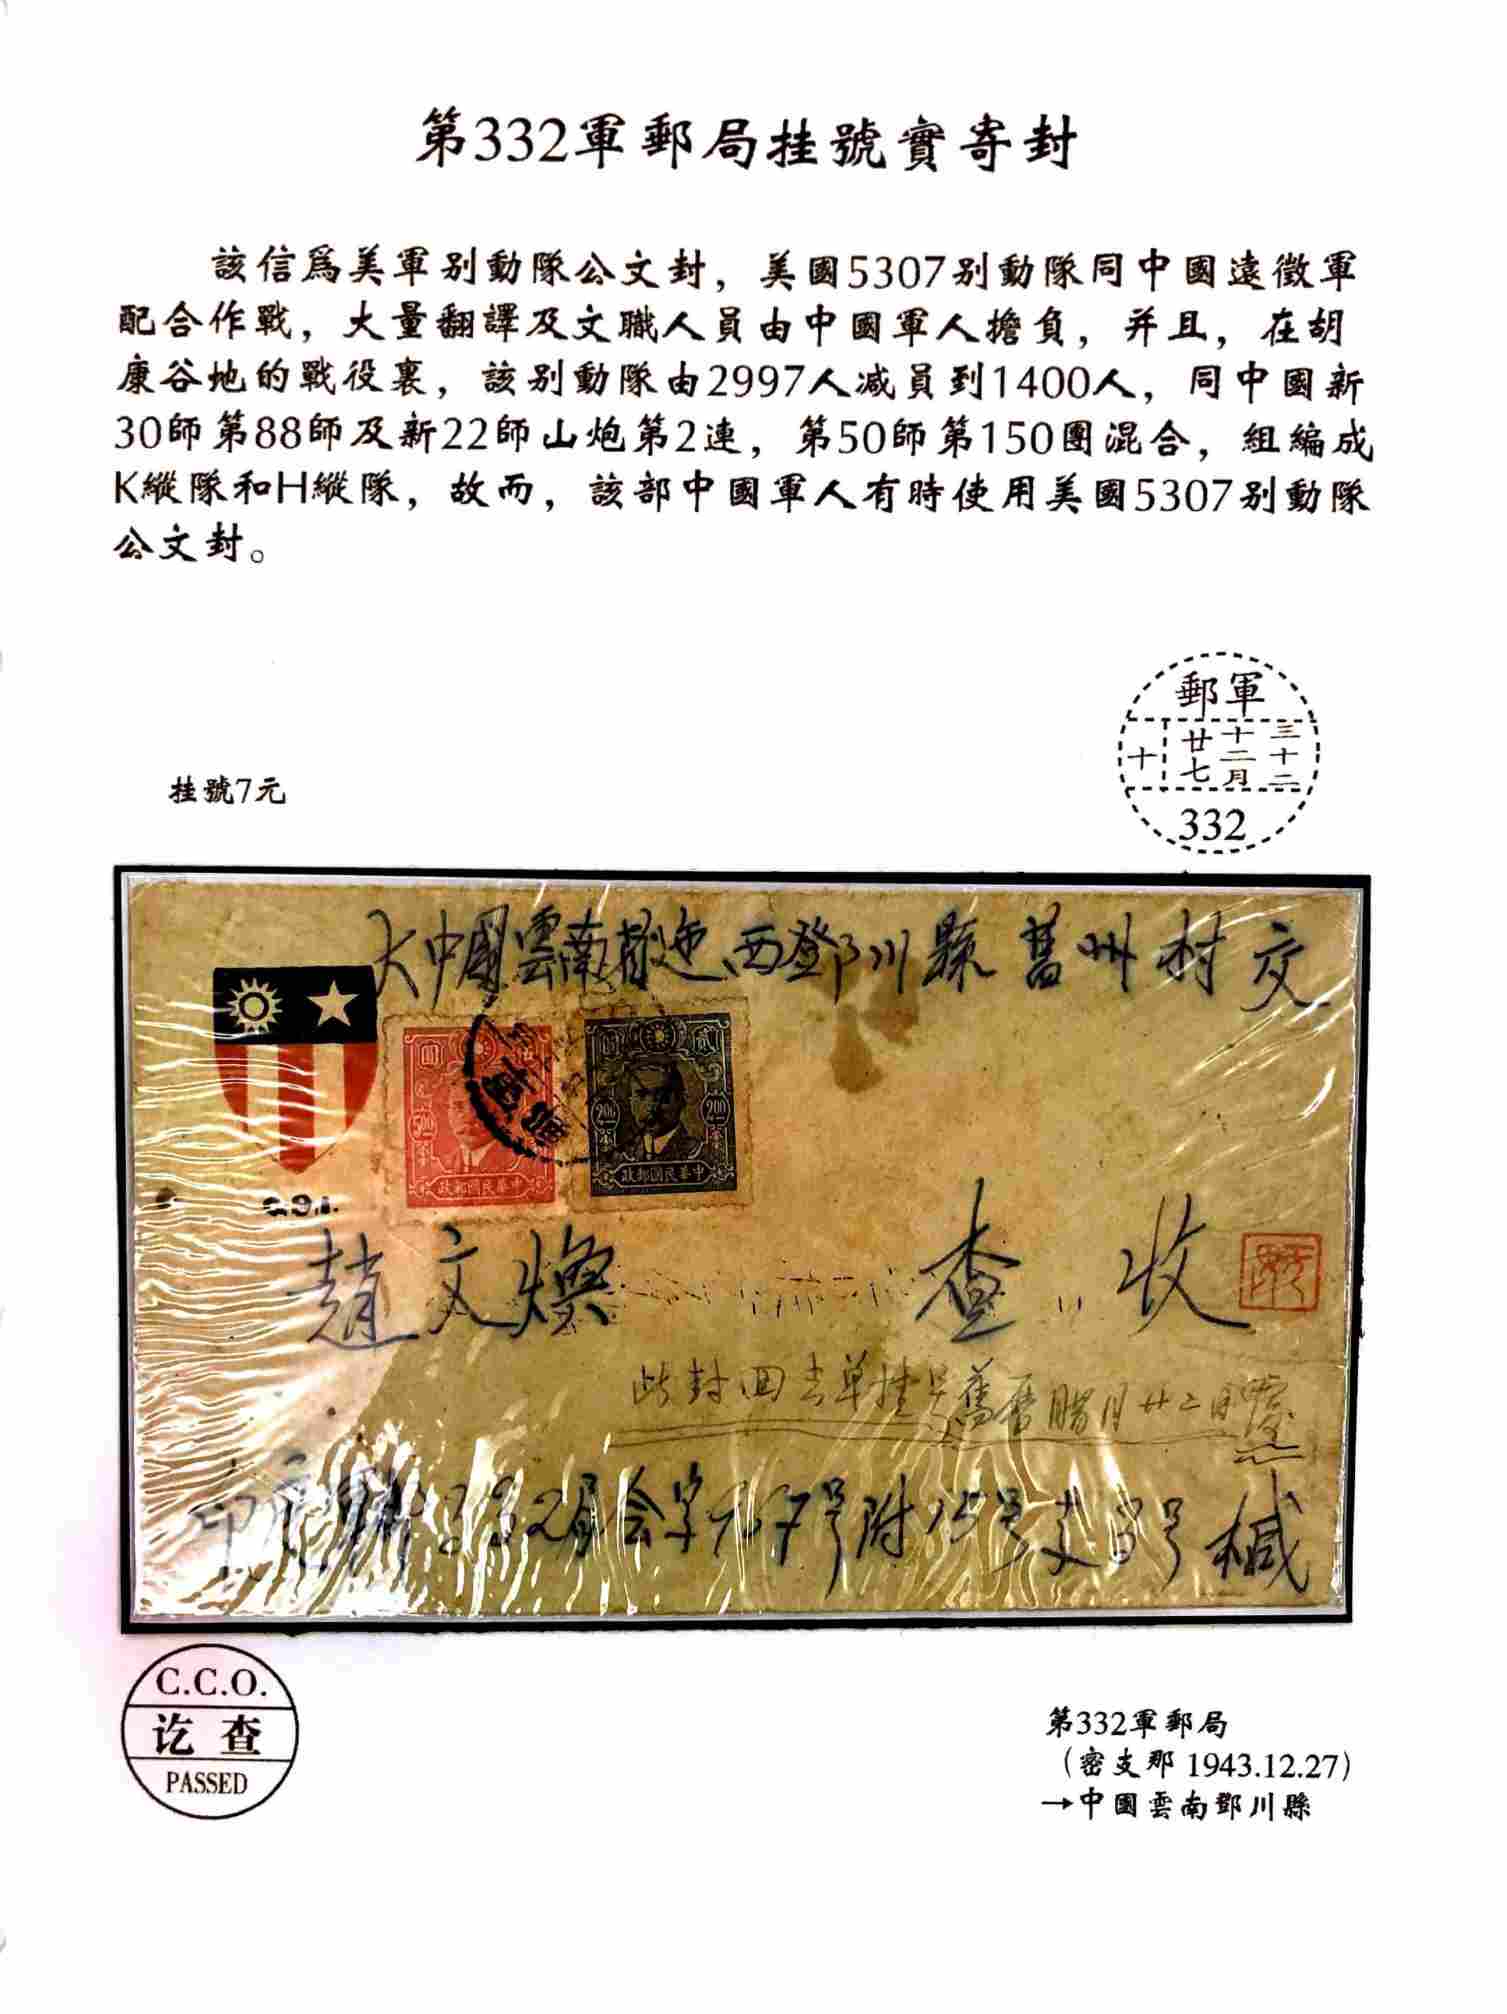 第332軍郵局挂號實寄封
該信爲美軍别動隊公文封，美國5307别動隊同中國遠徵軍
配合作戰，大量翻譯及文職人員由中國軍人擔負，并且，在胡
康谷地的戰役裏，該别動隊由2997人减員到1400人，同中國新
30師第88師及新22師山炮第2連，第50師第150團混合，組編成
K縱隊和H縱隊，故而，該部中國軍人有時使用美國5307别動隊
公文封。
郵軍
十 廿七 十二月 三十二
332
挂號7元
大中國雲南省迤西鄧川縣舊州村交
圓 伍
500
政郵國民華中
圓 貳
200 200
政郵國民華中
C.B.I.
趙文煥 查收
此封回去单挂号舊曆腊月廿二日
332局会字967号附15号支3号 椷
C.C.O.
讫查
PASSED
第332軍郵局
（密支那 1943.12.27）
→中國雲南鄧川縣